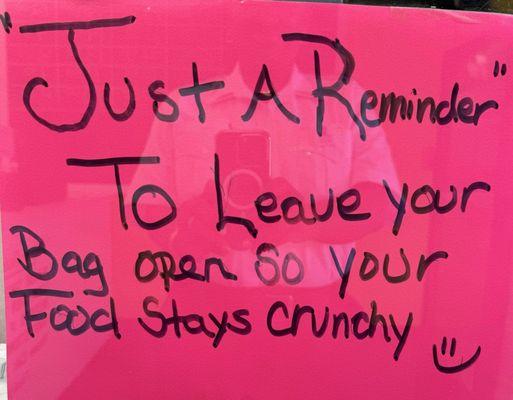 "Just A Reminder"
To Leave your
Bag open So your
Food Stays Crunchy